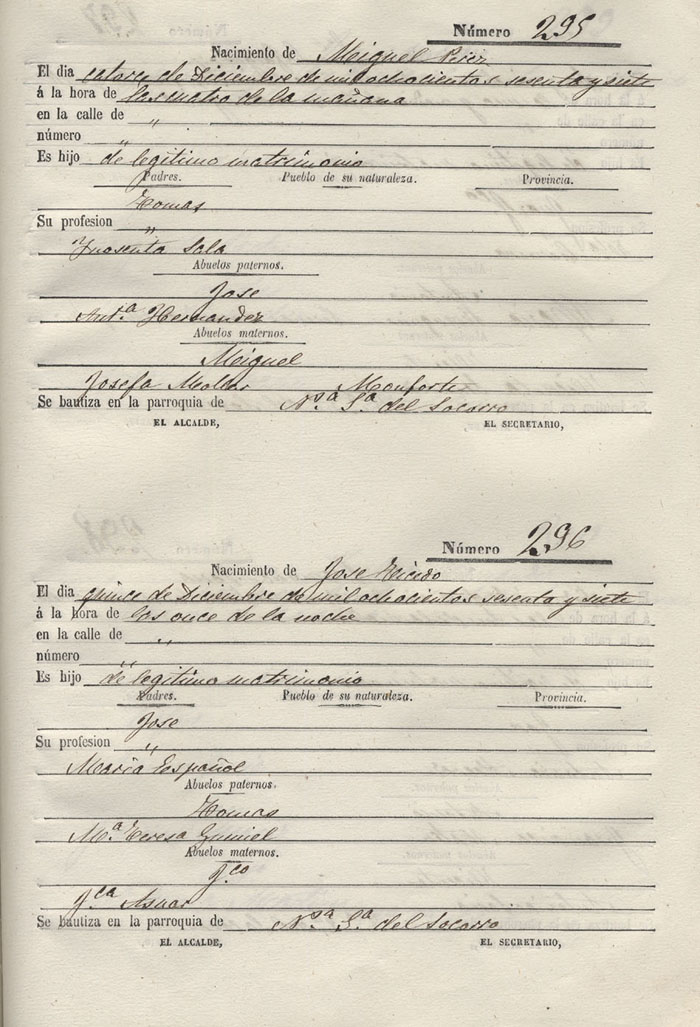 Número 295
Nacimiento de Meiguel Perez
El dia catorce de Diciembre de mil ochocientos sesenta y siete
á la hora de las cuatro de la mañana
en la calle de "
número "
Es hijo de legitimo matrimonio
Padres. Pueblo de su naturaleza. Provincia.
Tomas
Su profesion "
Ynosenta Sala
Abuelos paternos.
Jose
Ant.a Hernandez
Abuelos maternos.
Meiguel
Josefa Monforte
Se bautiza en la parroquia de N.sa S.a del Socorro
EL ALCALDE, EL SECRETARIO,
Número 296
Nacimiento de Jose
El dia quince de Diciembre de mil ochocientos sesenta y siete
á la hora de las once de la noche
en la calle de "
número "
Es hijo de legitimo matrimonio
Padres. Pueblo de su naturaleza. Provincia.
Jose
Su profesion "
Maria Español
Abuelos paternos.
Tomas
M.a Teresa Gumiel
Abuelos maternos.
F.co
F.ca Asnar
Se bautiza en la parroquia de N.sa S.a del Socorro
EL ALCALDE, EL SECRETARIO,